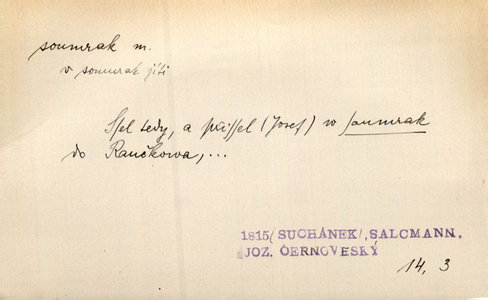 soumrak m.
v soumrak jíti
Ssel tedy, a přissel (Jozef) w saumrak
do Raučkowa, ...
1815/SUCHÁNEK/, SALCMANN.
JOZ. ČERNOVESKÝ
14, 3